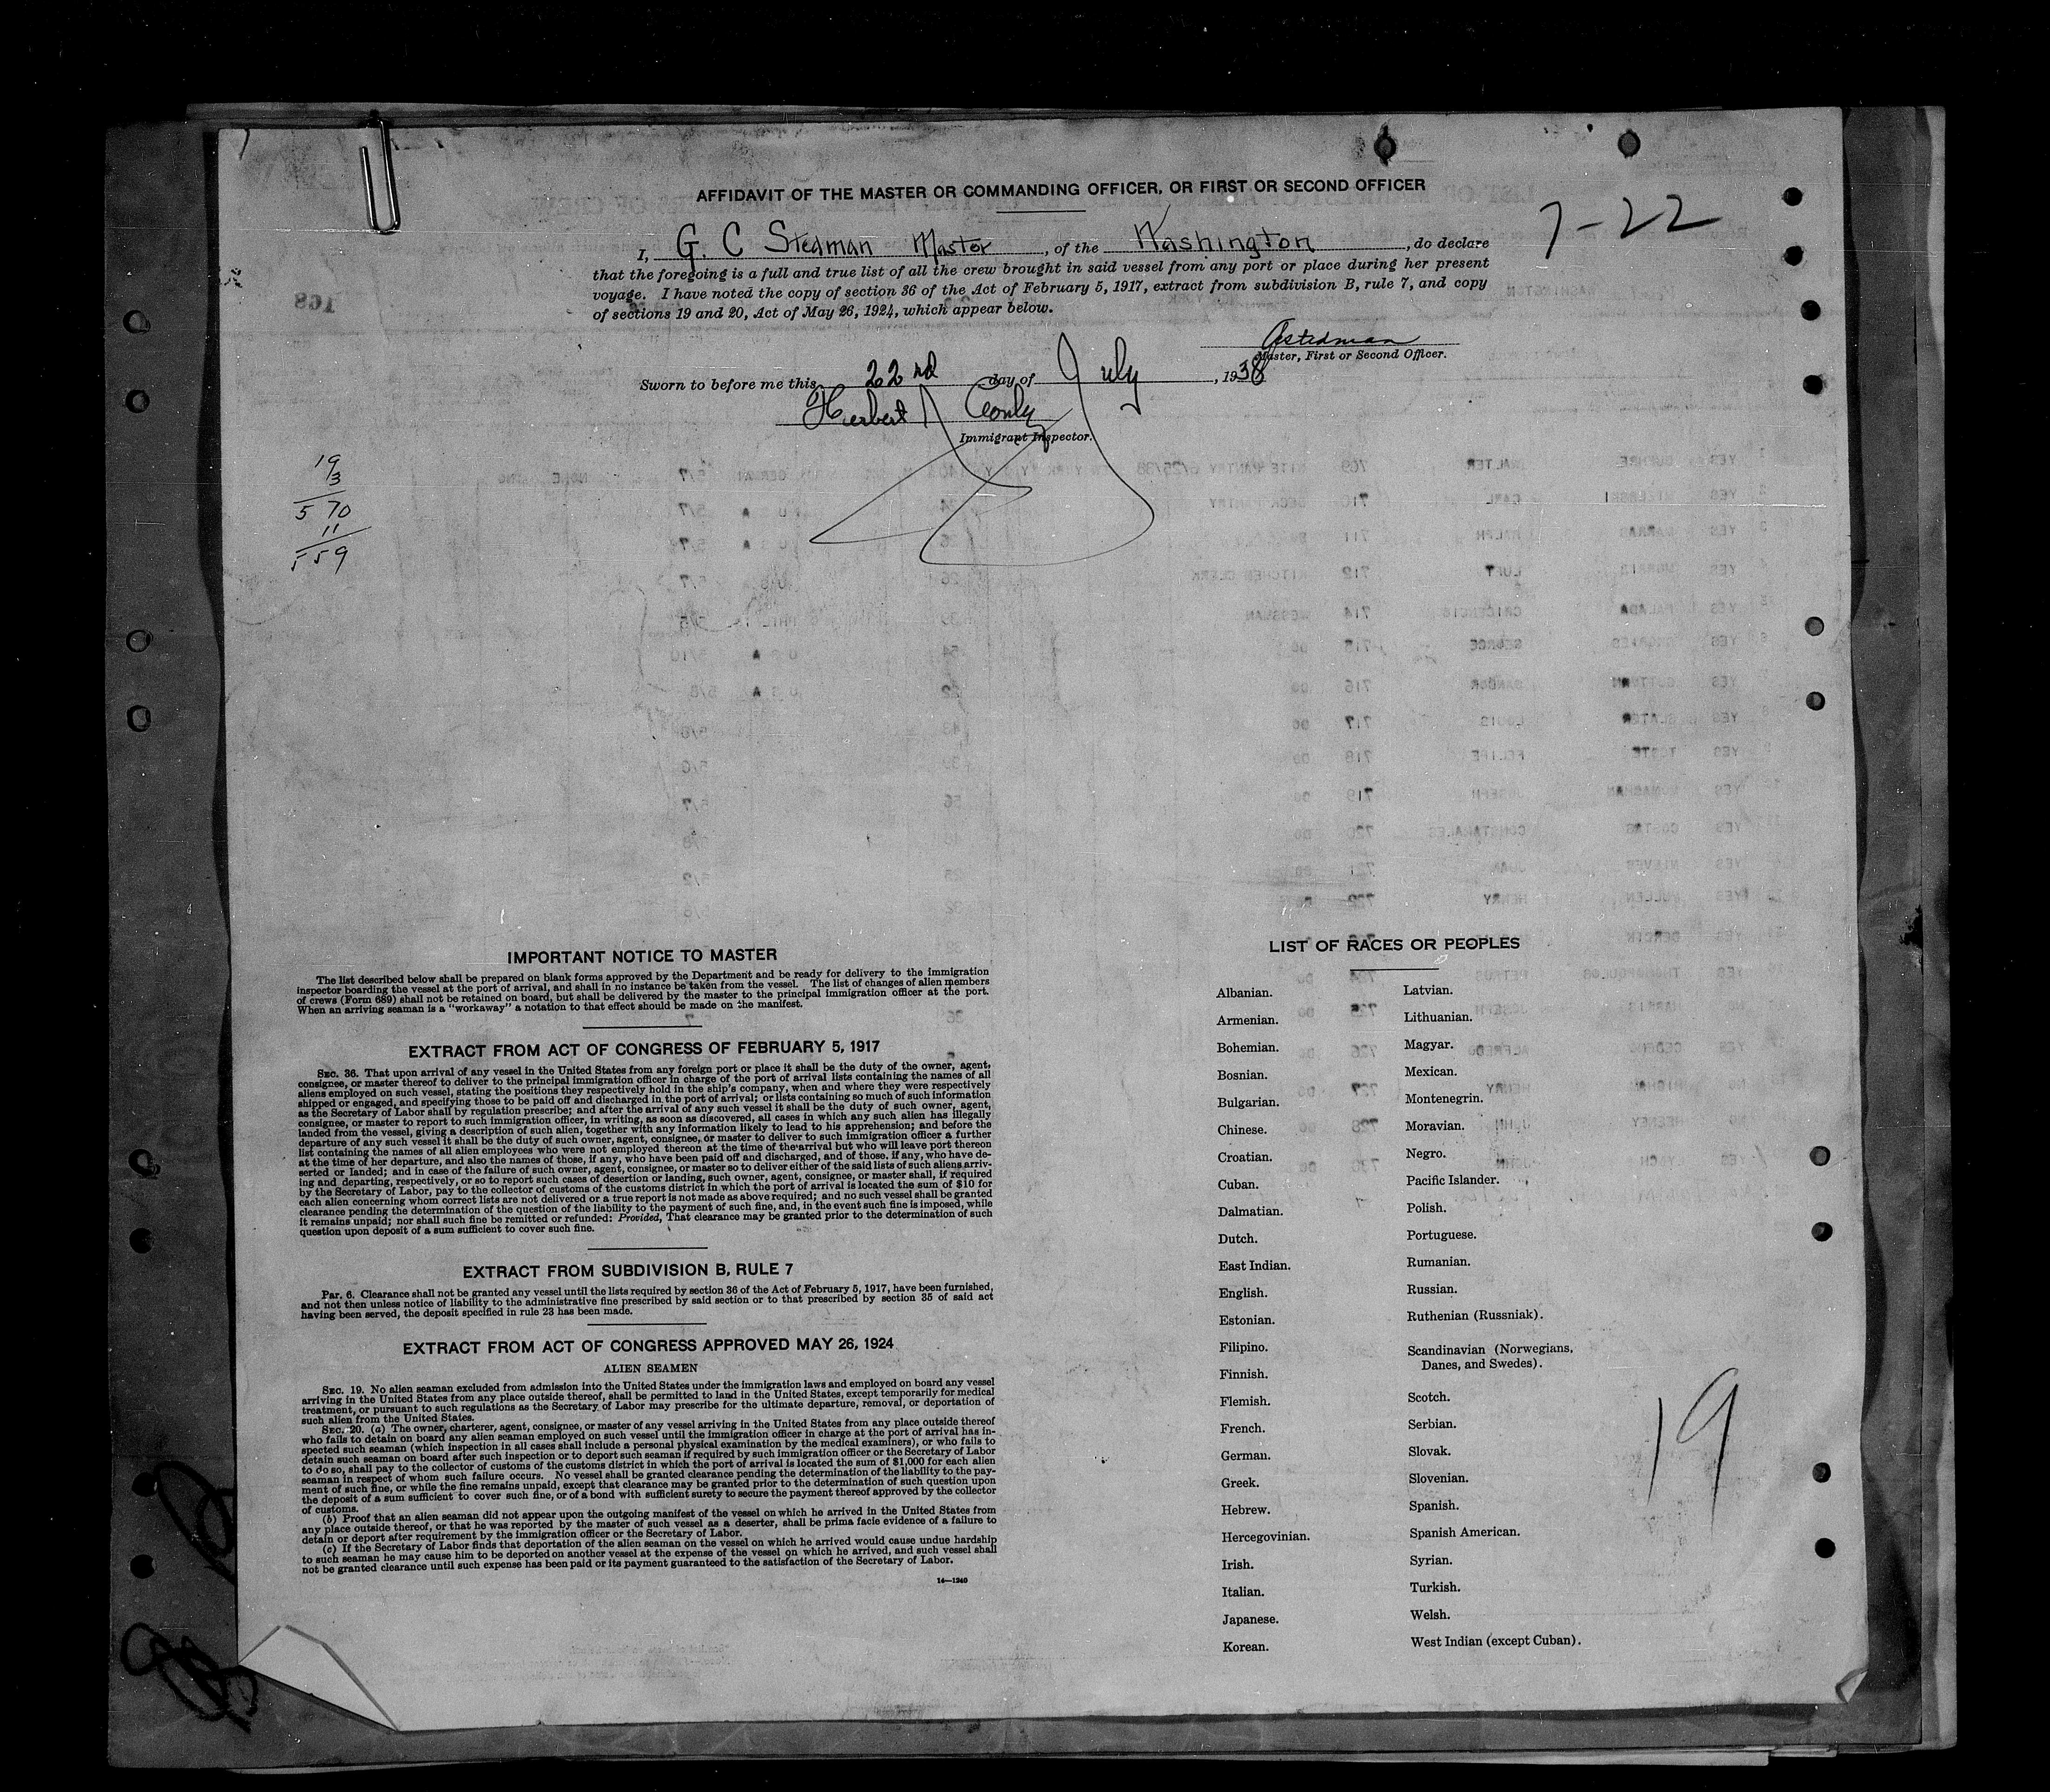 AFFIDAVIT OF THE MASTER OR COMMANDING OFFICER, OR FIRST OR SECOND OFFICER
7-22
I, G. C Stedman Master, of the Washington, do declare
that the foregoing is a full and true list of all the crew brought in said vessel from any port or place during her present
voyage. I have noted the copy of section 36 of the Act of February 5, 1917, extract from subdivision B, rule 7, and copy
of sections 19 and 20, Act of May 26, 1924, which appear below.
168
GCStedman
Master, First or Second Officer.
Sworn to before me this 22nd day of July, 1938
Herbert
Immigrant Inspector.
19
3
5 70
11
559
IMPORTANT NOTICE TO MASTER
The list described below shall be prepared on blank forms approved by the Department and be ready for delivery to the immigration
inspector boarding the vessel at the port of arrival, and shall in no instance be taken from the vessel. The list of changes of alien members
of crews (Form 689) shall not be retained on board, but shall be delivered by the master to the principal immigration officer at the port.
When an arriving seaman is a "workaway" a notation to that effect should be made on the manifest.
EXTRACT FROM ACT OF CONGRESS OF FEBRUARY 5, 1917
SEC. 36. That upon arrival of any vessel in the United States from any foreign port or place it shall be the duty of the owner, agent,
consignee, or master thereof to deliver to the principal immigration officer in charge of the port of arrival lists containing the names of all
aliens employed on such vessel, stating the positions they respectively hold in the ship's company, when and where they were respectively
shipped or engaged, and specifying those to be paid off and discharged in the port of arrival; or lists containing so much of such information
as the Secretary of Labor shall by regulation prescribe; and after the arrival of any such vessel it shall be the duty of such owner, agent,
consignee, or master to report to such immigration officer, in writing, as soon as discovered, all cases in which any such alien has illegally
landed from the vessel, giving a description of such alien, together with any information likely to lead to his apprehension; and before the
departure of any such vessel it shall be the duty of such owner, agent, consignee, or master to deliver to such immigration officer a further
list containing the names of all alien employees who were not employed thereon at the time of the arrival but who will leave port thereon
at the time of her departure, and also the names of those, if any, who have been paid off and discharged, and of those, if any, who have de-
serted or landed; and in case of the failure of such owner, agent, consignee, or master so to deliver either of the said lists of such aliens arriv-
ing and departing, respectively, or so to report such cases of desertion or landing, such owner, agent, consignee, or master shall, if required
by the Secretary of Labor, pay to the collector of customs of the customs district in which the port of arrival is located the sum of $10 for
each alien concerning whom correct lists are not delivered or a true report is not made as above required; and no such vessel shall be granted
clearance pending the determination of the question of the liability to the payment of such fine, and, in the event such fine is imposed, while
it remains unpaid; nor shall such fine be remitted or refunded: Provided, That clearance may be granted prior to the determination of such
question upon deposit of a sum sufficient to cover such fine.
EXTRACT FROM SUBDIVISION B, RULE 7
Par. 6. Clearance shall not be granted any vessel until the lists required by section 36 of the Act of February 5, 1917, have been furnished,
and not then unless notice of liability to the administrative fine prescribed by said section or to that prescribed by section 35 of said act
having been served, the deposit specified in rule 23 has been made.
EXTRACT FROM ACT OF CONGRESS APPROVED MAY 26, 1924
ALIEN SEAMEN
SEC. 19. No alien seaman excluded from admission into the United States under the immigration laws and employed on board any vessel
arriving in the United States from any place outside thereof, shall be permitted to land in the United States, except temporarily for medical
treatment, or pursuant to such regulations as the Secretary of Labor may prescribe for the ultimate departure, removal, or deportation of
such alien from the United States.
SEC. 20. (a) The owner, charterer, agent, consignee, or master of any vessel arriving in the United States from any place outside thereof
who fails to detain on board any alien seaman employed on such vessel until the immigration officer in charge at the port of arrival has in-
spected such seaman (which inspection in all cases shall include a personal physical examination by the medical examiners), or who fails to
detain such seaman on board after such inspection or to deport such seaman if required by such immigration officer or the Secretary of Labor
to do so, shall pay to the collector of customs of the customs district in which the port of arrival is located the sum of $1,000 for each alien
seaman in respect of whom such failure occurs. No vessel shall be granted clearance pending the determination of the liability to the pay-
ment of such fine, or while the fine remains unpaid, except that clearance may be granted prior to the determination of such question upon
the deposit of a sum sufficient to cover such fine, or of a bond with sufficient surety to secure the payment thereof approved by the collector
of customs.
(b) Proof that an alien seaman did not appear upon the outgoing manifest of the vessel on which he arrived in the United States from
any place outside thereof, or that he was reported by the master of such vessel as a deserter, shall be prima facie evidence of a failure to
detain or deport after requirement by the immigration officer or the Secretary of Labor.
(c) If the Secretary of Labor finds that deportation of the alien seaman on the vessel on which he arrived would cause undue hardship
to such seaman he may cause him to be deported on another vessel at the expense of the vessel on which he arrived, and such vessel shall
not be granted clearance until such expense has been paid or its payment guaranteed to the satisfaction of the Secretary of Labor.
14—1240
LIST OF RACES OR PEOPLES
Albanian.
Armenian.
Bohemian.
Bosnian.
Bulgarian.
Chinese.
Croatian.
Cuban.
Dalmatian.
Dutch.
East Indian.
English.
Estonian.
Filipino.
Finnish.
Flemish.
French.
German.
Greek.
Hebrew.
Hercegovinian.
Irish.
Italian.
Japanese.
Korean.
Latvian.
Lithuanian.
Magyar.
Mexican.
Montenegrin.
Moravian.
Negro.
Pacific Islander.
Polish.
Portuguese.
Rumanian.
Russian.
Ruthenian (Russniak).
Scandinavian (Norwegians,
Danes, and Swedes).
Scotch.
Serbian.
Slovak.
Slovenian.
Spanish.
Spanish American.
Syrian.
Turkish.
Welsh.
West Indian (except Cuban).
19